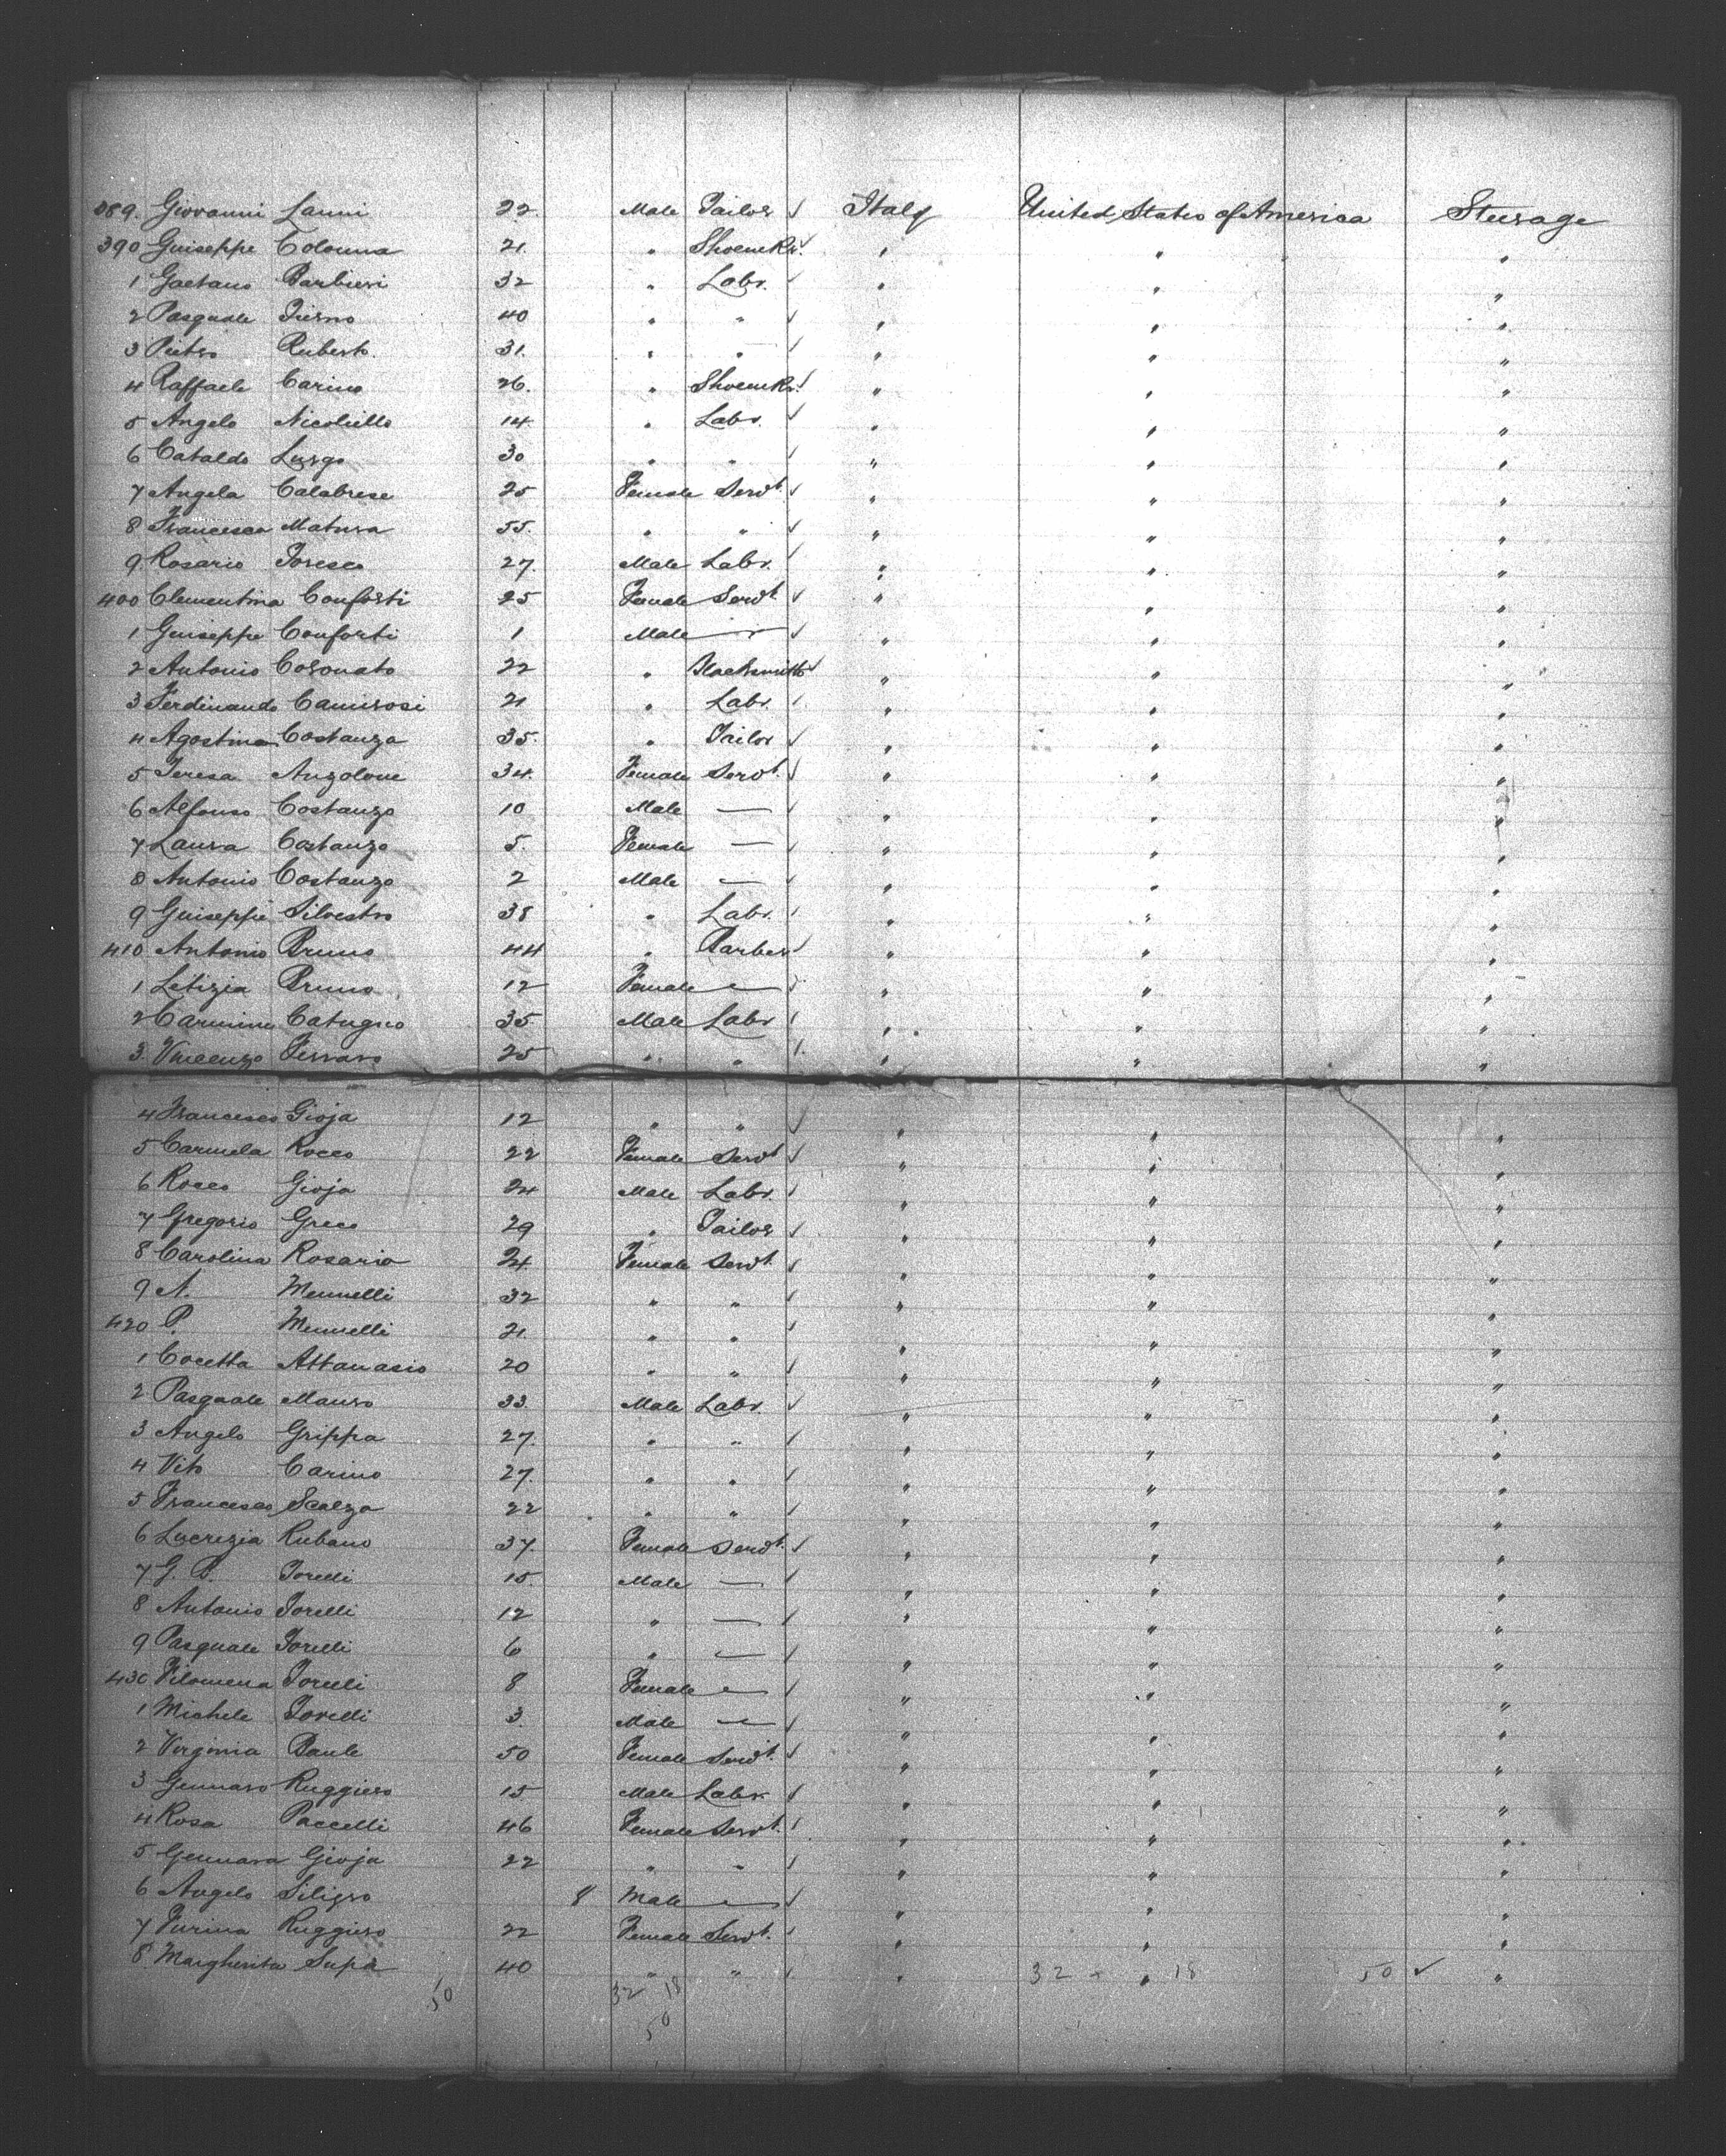 389. Giovanni Lanni 22. Male Tailor √ Italy United States of America Steerage
390 Guiseppe Colonna 21. " Shoemkr. √ " " "
1 Gaetano Barbieri 32 " Labr. √ " " "
2 Pasquale Tierno 40 " " √ " " "
3 Pietro Ruberto. 31. " " √ " " "
4 Raffaele Carino 26. " Shoemkr. √ " " "
5 Angelo Nicoliello 14 " Labr. √ " " "
6 Cataldo Lurgo 30 " " √ " " "
7 Angela Calabrese 25 Female Servt. √ " " "
8 Francesca Matura 55. " " √ " " "
9 Rosario Toresco 27. Male Labr. √ " " "
400 Clementina Conforti 25 Female Servt. √ " " "
1 Guiseppe Conforti 1 Male — √ " " "
2 Antonio Coronato 22 " Blacksmith √ " " "
3 Ferdinando Camirosi 21 " Labr. √ " " "
4 Agostina Costanza 35. " Tailor √ " " "
5 Teresa Anzolone 34. Female Servt. √ " " "
6 Alfonso Costanzo 10 Male — √ " " "
7 Laura Costanzo 5. Female — √ " " "
8 Antonio Costanzo 2 Male — √ " " "
9 Guiseppe Silvestro 38 " Labr. √ " " "
410 Antonio Bruno 44 " Barber √ " " "
1 Letizia Bruno 12 Female — √ " " "
2 Carmine Catugno 35 Male Labr √ " " "
3. Vincenzo Ferraro 25 " " √ " " "
4 Francesco Gioja 12 " " √ " " "
5 Carmela Rocco 22 Female Servt √ " " "
6 Rocco Gioja 24 Male Labr. √ " " "
7 Gregorio Greco 29 " Tailor √ " " "
8 Carolina Rosario 24. Female Servt. √ " " "
9 A. Mennelli 32 " " √ " " "
420 P. Mennelli 21. " " √ " " "
1 Cocetta Attanasio 20 " " √ " " "
2 Pasquale Mauro 33. Male Labr. √ " " "
3 Angelo Grippa 27. " " √ " " "
4 Vito Carino 27. " " √ " " "
5 Francesco Scalza 22 " " √ " " "
6 Lucrezia Rubano 37. Female Servt. √ " " "
7 G. B. Torelli 15. Male — √ " " "
8 Antonio Torelli 12 " — √ " " "
9 Pasquale Torelli 6 " — √ " " "
430 Filomena Torelli 8 Female — √ " " "
1 Michele Torelli 3. Male — √ " " "
2 Virginia Baule 50 Female Servt. √ " " "
3 Gennaro Ruggiero 15 Male Labr. √ " " "
4 Rosa Paccelli 46 Female Servt. √ " " "
5 Gennara Gioja 22 " " √ " " "
6 Angelo Siligro 8 Male — √ " " "
7 Furina Ruggiero 22 Female Servt. √ " " "
8. Margherita Supa 40 " " √ " 32 " 18 50 ✓ "
50 32 18
50